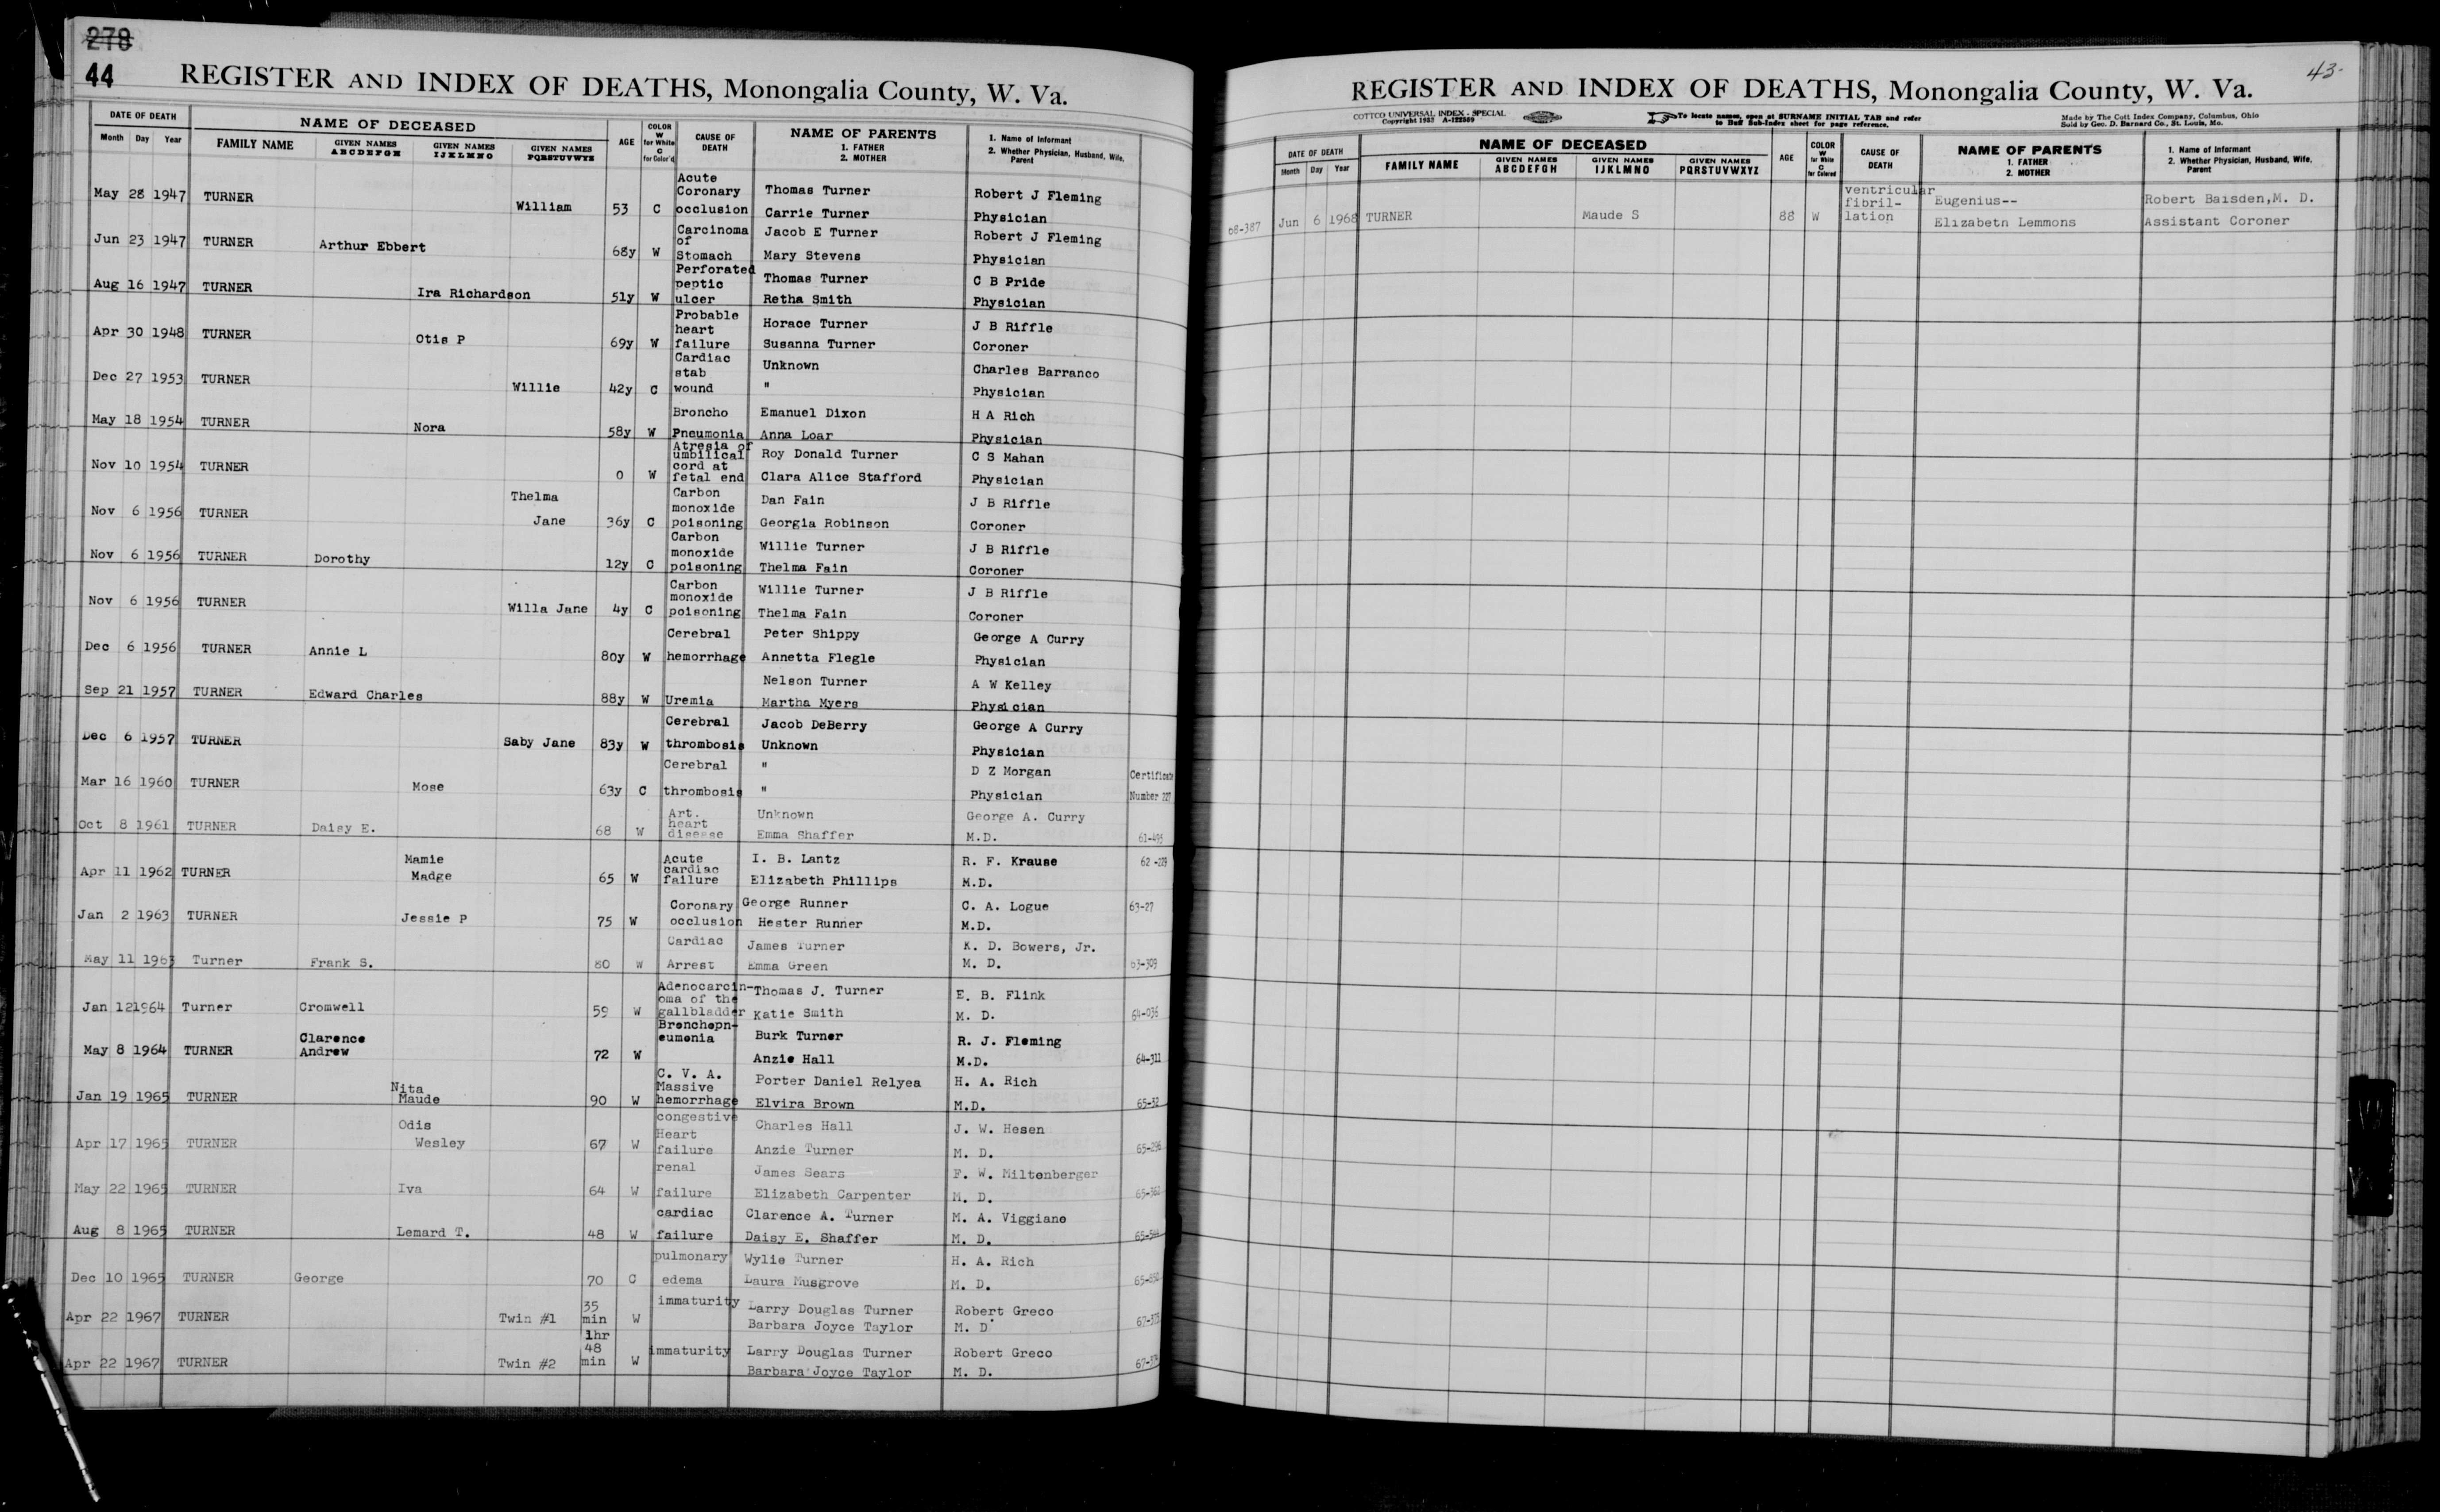 278
44 REGISTER AND INDEX OF DEATHS, Monongalia County, W. Va.
DATE OF DEATH NAME OF DECEASED AGE COLOR W for White C for Color'd CAUSE OF DEATH NAME OF PARENTS 1. FATHER 2. MOTHER 1. Name of Informant 2. Whether Physician, Husband, Wife, Parent
Month Day Year FAMILY NAME GIVEN NAMES ABCDEFGH GIVEN NAMES IJKLMNO GIVEN NAMES PQRSTUVWXYZ
May 28 1947 TURNER William 53 C Acute Coronary occlusion Thomas Turner Carrie Turner Robert J Fleming Physician
Jun 23 1947 TURNER Arthur Ebbert 68y W Carcinoma of Stomach Jacob E Turner Mary Stevens Robert J Fleming Physician
Aug 16 1947 TURNER Ira Richardson 51y W Perforated peptic ulcer Thomas Turner Retha Smith C B Pride Physician
Apr 30 1948 TURNER Otis P 69y W Probable heart failure Horace Turner Susanna Turner J B Riffle Coroner
Dec 27 1953 TURNER Willie 42y C Cardiac stab wound Unknown " Charles Barranco Physician
May 18 1954 TURNER Nora 58y W Broncho Pneumonia Emanuel Dixon Anna Loar H A Rich Physician
Nov 10 1954 TURNER 0 W Atresia of umbilical cord at fetal end Roy Donald Turner Clara Alice Stafford C S Mahan Physician
Nov 6 1956 TURNER Thelma Jane 36y C Carbon monoxide poisoning Dan Fain Georgia Robinson J B Riffle Coroner
Nov 6 1956 TURNER Dorothy 12y C Carbon monoxide poisoning Willie Turner Thelma Fain J B Riffle Coroner
Nov 6 1956 TURNER Willa Jane 4y C Carbon monoxide poisoning Willie Turner Thelma Fain J B Riffle Coroner
Dec 6 1956 TURNER Annie L 80y W Cerebral hemorrhage Peter Shippy Annetta Flegle George A Curry Physician
Sep 21 1957 TURNER Edward Charles 88y W Uremia Nelson Turner Martha Myers A W Kelley Physician
Dec 6 1957 TURNER Saby Jane 83y W Cerebral thrombosis Jacob DeBerry Unknown George A Curry Physician
Mar 16 1960 TURNER Mose 63y C Cerebral thrombosis " " D Z Morgan Physician Certificate Number 227
Oct 8 1961 TURNER Daisy E. 68 W Art. heart disease Unknown Emma Shaffer George A. Curry M.D. 61-495
Apr 11 1962 TURNER Mamie Madge 65 W Acute cardiac failure I. B. Lantz Elizabeth Phillips R. F. Krause M.D. 62-229
Jan 2 1963 TURNER Jessie P 75 W Coronary occlusion George Runner Hester Runner C. A. Logue M.D. 63-27
May 11 1963 Turner Frank S. 80 W Cardiac Arrest James Turner Emma Green K. D. Bowers, Jr. M. D. 63-309
Jan 12 1964 Turner Cromwell 59 W Adenocarcin-oma of the gallbladder Thomas J. Turner Katie Smith E. B. Flink M. D. 64-036
May 8 1964 TURNER Clarence Andrew 72 W Bronchopn-eumonia Burk Turner Anzie Hall R. J. Fleming M.D. 64-311
Jan 19 1965 TURNER Nita Maude 90 W C. V. A. Massive hemorrhage Porter Daniel Relyea Elvira Brown H. A. Rich M.D. 65-32
Apr 17 1965 TURNER Odis Wesley 67 W congestive Heart failure Charles Hall Anzie Turner J. W. Hesen M. D. 65-296
May 22 1965 TURNER Iva 64 W renal failure James Sears Elizabeth Carpenter F. W. Miltenberger M. D.
Aug 8 1965 TURNER Lemard T. 48 W cardiac failure Clarence A. Turner Daisy E. Shaffer M. A. Viggiano M. D.
Dec 10 1965 TURNER George 70 C pulmonary edema Wylie Turner Laura Musgrove H. A. Rich M. D.
Apr 22 1967 TURNER Twin #1 35 min W immaturity Larry Douglas Turner Barbara Joyce Taylor Robert Greco M. D
Apr 22 1967 TURNER Twin #2 1hr 48 min W immaturity Larry Douglas Turner Barbara Joyce Taylor Robert Greco M. D.
43-
REGISTER AND INDEX OF DEATHS, Monongalia County, W. Va.
COTTCO UNIVERSAL INDEX - SPECIAL
Copyright 1953 A-122589
To locate names, open at SURNAME INITIAL TAB and refer
to Buff Sub-Index sheet for page reference.
Made by The Cott Index Company, Columbus, Ohio
Sold by Geo. D. Barnard Co., St. Louis, Mo.
DATE OF DEATH NAME OF DECEASED AGE COLOR W for White C for Colored CAUSE OF DEATH NAME OF PARENTS 1. FATHER 2. MOTHER 1. Name of Informant 2. Whether Physician, Husband, Wife, Parent
Month Day Year FAMILY NAME GIVEN NAMES ABCDEFGH GIVEN NAMES IJKLMNO GIVEN NAMES PQRSTUVWXYZ
68-387 Jun 6 1968 TURNER Maude S 88 W ventricular fibril-lation Eugenius-- Elizabeth Lemmons Robert Baisden,M. D. Assistant Coroner